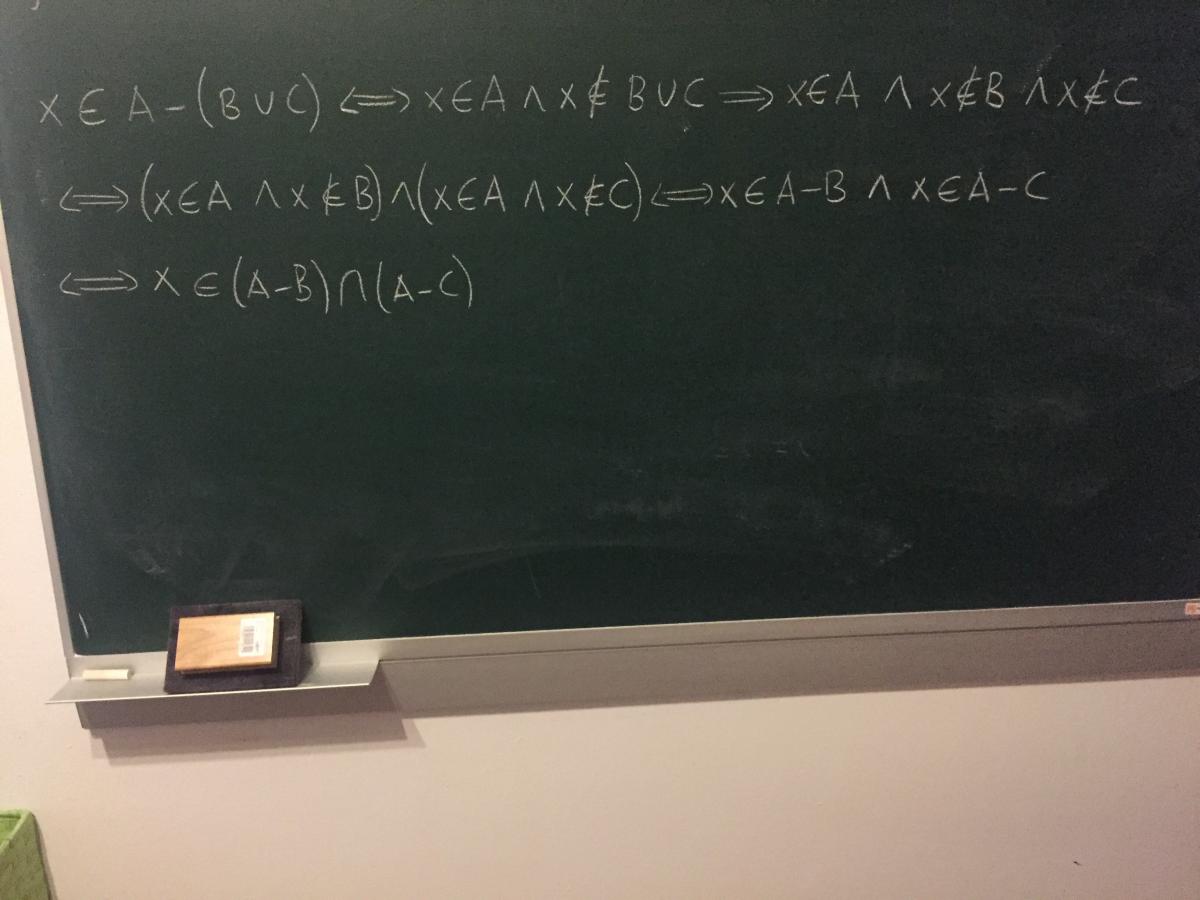 x ∈ A − (B ∪ C) ⟺ x ∈ A ∧ x ∉ B ∪ C ⟹ x ∈ A ∧ x ∉ B ∧ x ∉ C
⟺ (x ∈ A ∧ x ∉ B) ∧ (x ∈ A ∧ x ∉ C) ⟺ x ∈ A − B ∧ x ∈ A − C
⟺ x ∈ (A − B) ∩ (A − C)